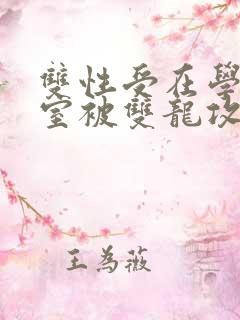 雙性受在學
室被雙龍攻
王為薇